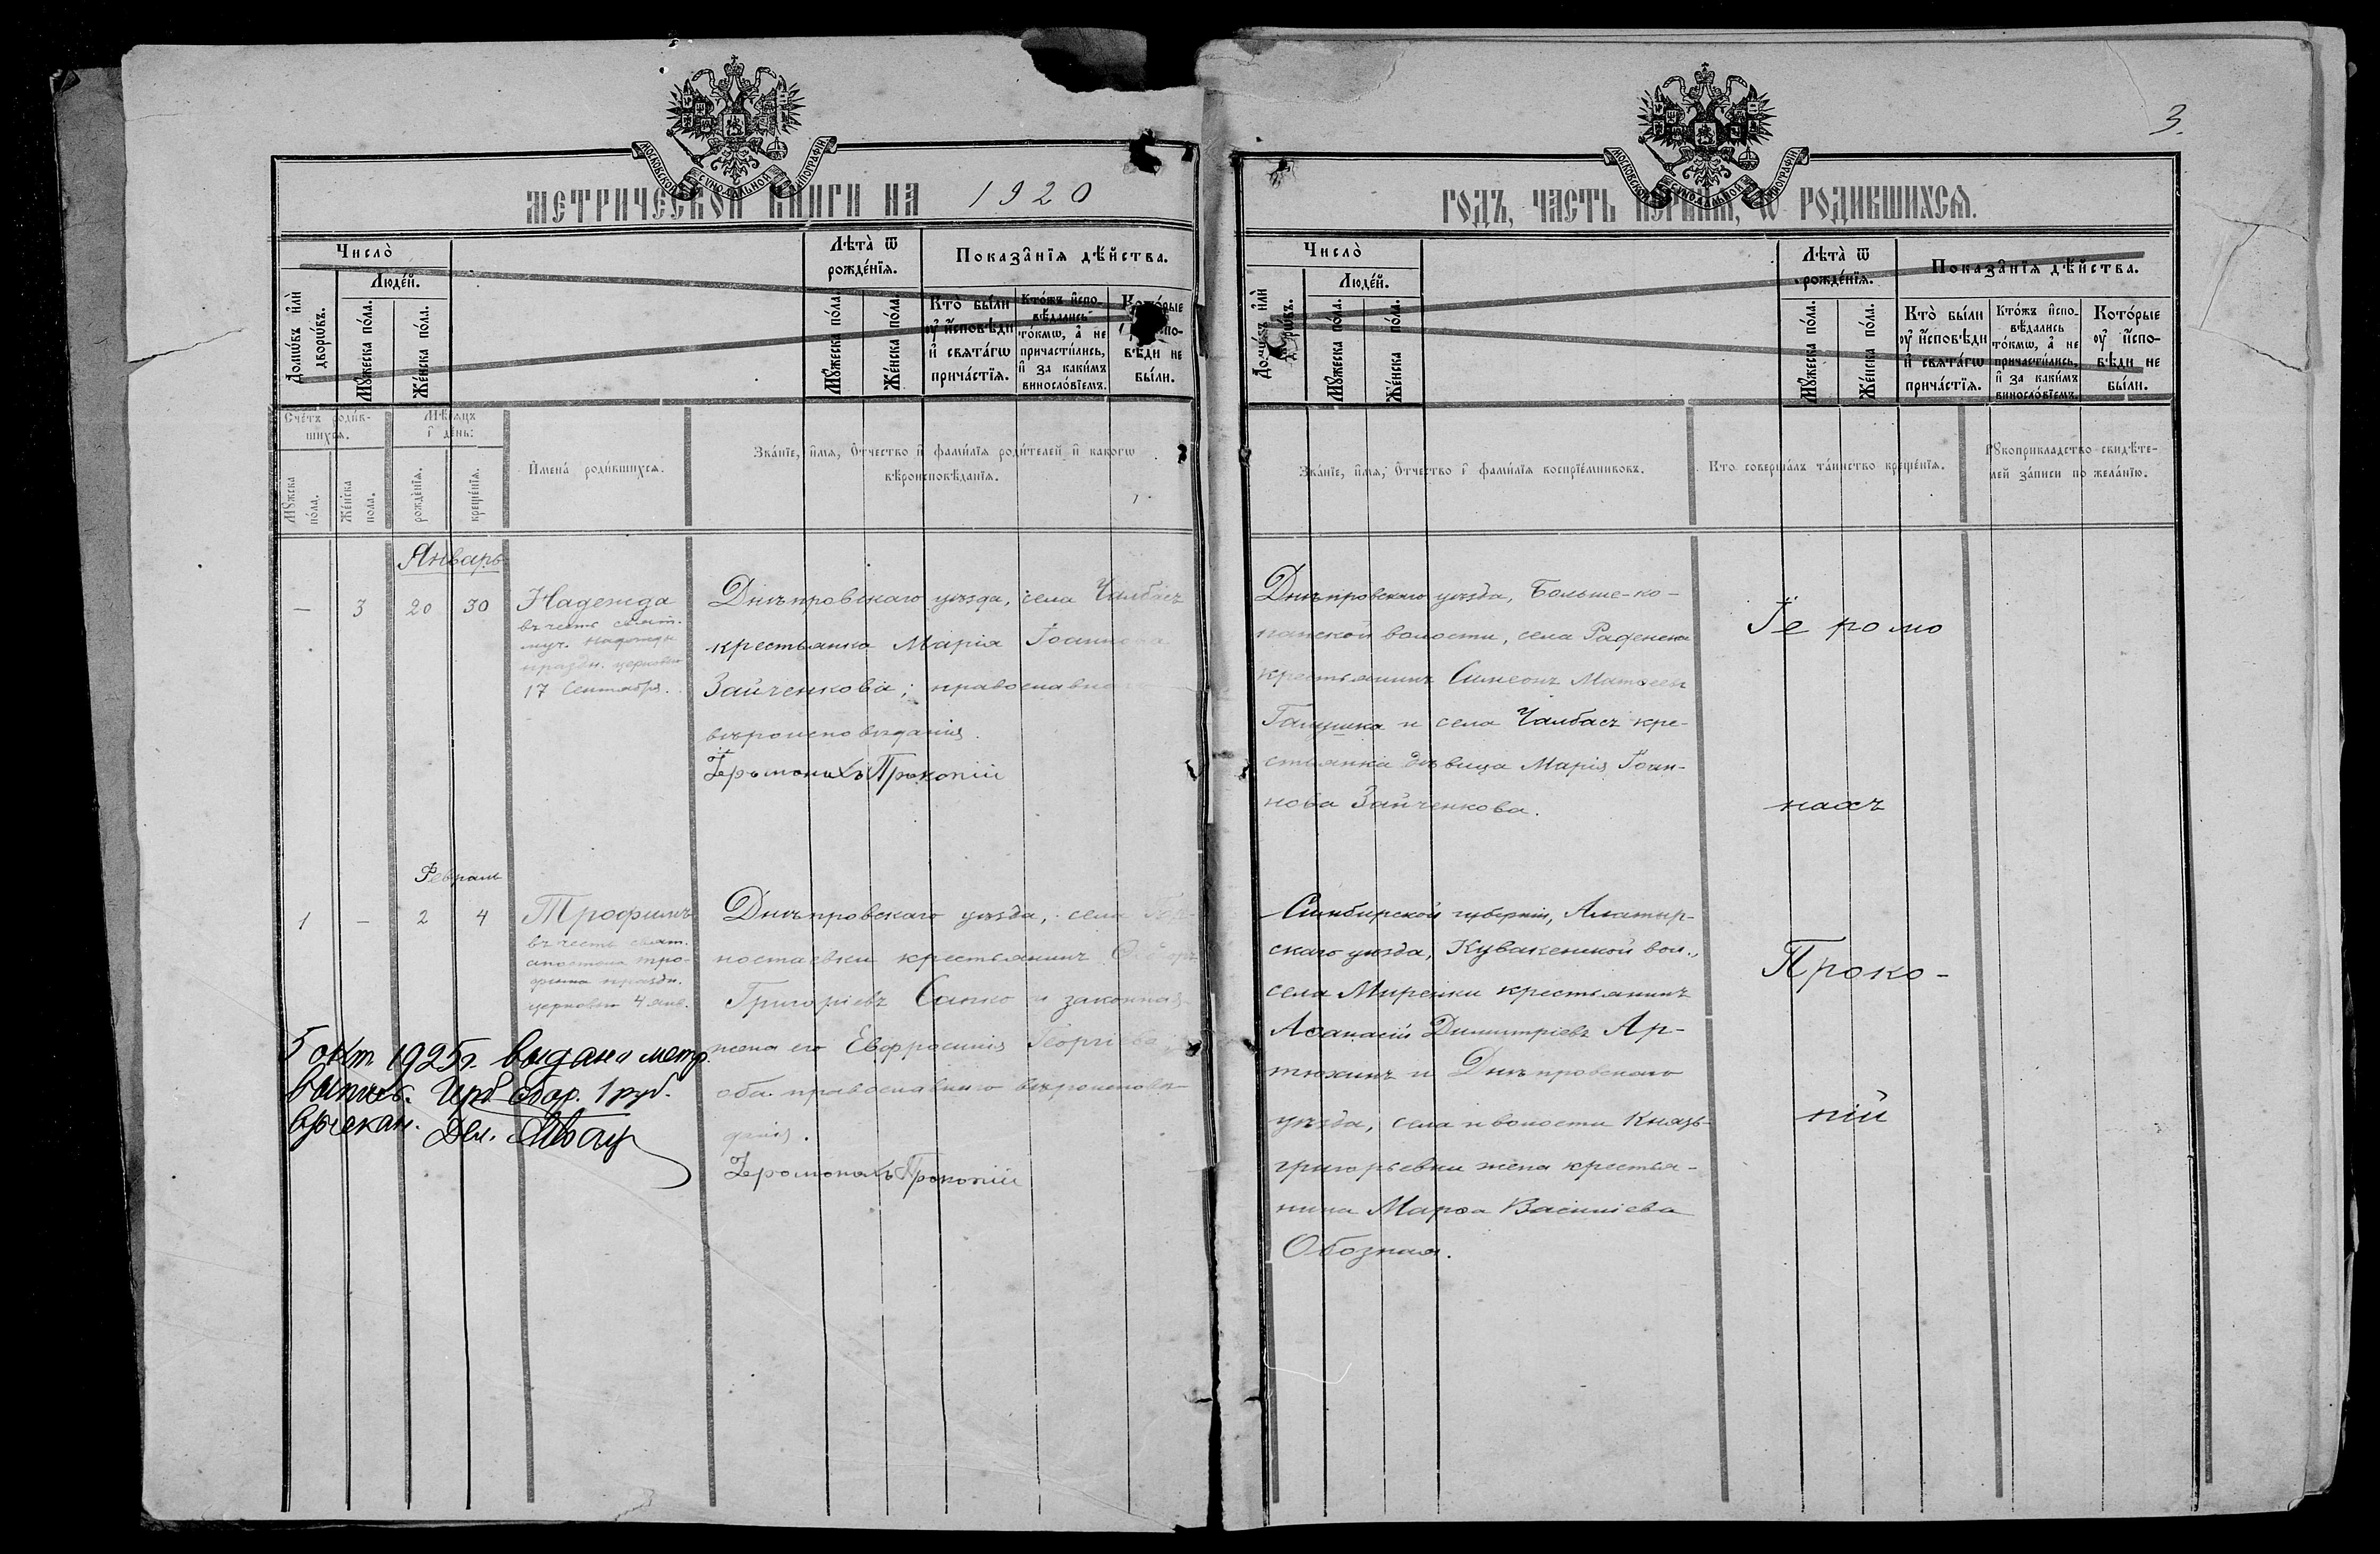 МОСКОВСКОЙ СѴНОДАЛЬНОЙ ТИПОГРАФІИ
МЕТРИЧЕСКОЙ КНИГИ НА 1920
Число̀
Домѡ́въ и҆лѝ дворѡ́въ.
Люде́й.
Мꙋ́жеска по́ла.
Же́нска по́ла.
Лѣта̀ ѿ рожде́нїя.
Мꙋ́жеска по́ла.
Же́нска по́ла.
Показа̑нїя дѣ́йства.
Кто̀ бы́ли
ᲂу҆ и҆́сповѣди
и҆ свята́гѡ
прича́стїя.
Кто́жъ и҆спо-
вѣ́дались
то́кмѡ, а҆ не
причасти́лись,
и҆ за каки́мъ
винosло́вїемъ.
Кото́рые
вѣди не
бы́ли.
Сче́тъ роди́в-
шихся.
Мꙋ́жска по́ла.
Же́нска пола.
Мѣ́сяцъ
и҆ де́нь:
рожде́нїя.
креще́нїя.
И҆мена̀ роди́вшихся.
Зва́нїе, и҆́мя, ѻ҆́тчество и҆ фами́лїя роди́телей и҆ како́гѡ
вѣроисповѣ́данїя.
Январь
— 3 20 30
Надежда
въ честь свят.
муч. Надежды
праздн. церковью
17 Сентября.
Днѣпровскаго уѣзда, села Чалбасъ
крестьянка Марія Іоаннова
Зайченкова; православнаго
вѣроисповѣданія.
Іеромонахъ Прокопій
Февраль
1 — 2 4
Трофимъ
въ честь свят.
апостола Тро-
фима праздн.
церковью 4 янв.
Днѣпровскаго уѣзда, села Гор-
ностаевки крестьянинъ Ѳеодоръ
Григоріевъ Санко и законная
жена его Евфросинія Георгіева
оба православнаго вѣроисповѣ-
данія.
Іеромонахъ Прокопій
5 окт. 1925 г. выдана метр.
выпись. Герб сбор. 1 руб.
взыскан.
Дел.
3.
МОСКОВСКОЙ СѴНОДАЛЬНОЙ ТИПОГРАФІИ
ГОДЪ, ЧАСТЬ ПЕРВАЯ, Ѡ РОДИВШИХСЯ.
Число̀
Домѡ́въ и҆лѝ дворѡ́въ.
Люде́й.
Мꙋ́жеска по́ла.
Же́нска по́ла.
Лѣта̀ ѿ
рожде́нїя.
Мꙋ́жеска по́ла.
Же́нска по́ла.
Показа̑нїя дѣ́йства.
Кто̀ бы́ли
ᲂу҆ и҆́сповѣди
и҆ свята́гѡ
прича́стїя.
Кто́жъ и҆спо-
вѣ́дались
то́кмѡ, а҆ не
причасти́лись,
и҆ за каки́мъ
винослó́вїемъ.
Кото́рые
ᲂу҆ и҆́спо-
вѣди не
бы́ли.
Зва́нїе, и҆́мя, ѻ҆́тчество и҆ фами́лїя воспрїе́мниковъ.
Кто соверша́лъ та́инство креще́нїя.
Рꙋкоприкла́дство свидѣ́те-
лей за́писи по жела́нїю.
Днѣпровскаго уѣзда, Больше-ко-
панской волости, села Раденска
крестьянинъ Симеонъ Матѳеевъ
Галушка и села Чалбасъ кре-
стьянка дѣвица Марія Іоан-
нова Зайченкова.
Іе ромо
нахъ
Симбирской губерніи, Алатыр-
скаго уѣзда, Кувакенской вол.,
села Миренки крестьянинъ
Аѳанасій Димитріевъ Ар-
тюхинъ и Днѣпровскаго
уѣзда, села и волости Князь-
григорьевки жена крестья-
нина Марѳа Василіева
Обозная.
Проко-
пій